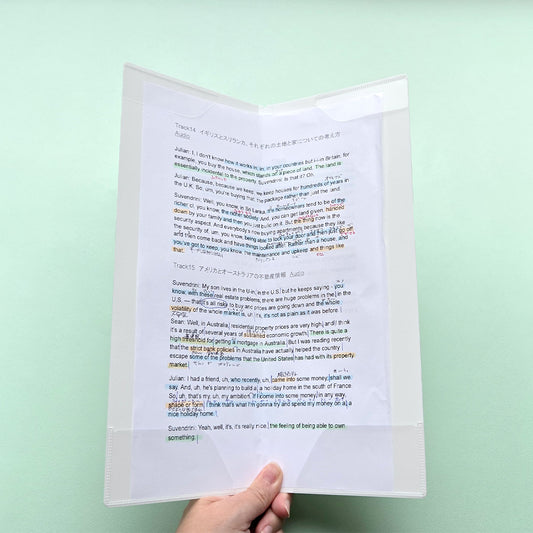 Track14 イギリスとスリランカ、それぞれの土地と家についての考え方
Audio
Julian: I, I don't know how it works in, in, in your countries but in Britain, for
example, you buy the house, which stands on a piece of land. The land is
essentially incidental to the property. Suvendrini: Is that it? Oh.
Julian: Because, because we keep, we keep houses for hundreds of years in
the U.K. So, um, you're buying that. The package rather than just the land.
Suvendrini: Well, you know, in Sri Lanka, the homeowners tend to be of the
richer cl, you know, the richer society. And, you can get land given, handed
down by your family and then you just build on it. But the thing now is the
security aspect. And everybody's now buying apartments, because they like
the security of, um, you know, being able to lock your door and then just go off
and then come back and have things looked after. Rather than a house, and
you've got to keep, you know, the maintenance and upkeep and things like
that.
Track15 アメリカとオーストラリアの不動産情報 Audio
Suvendrini: My son lives in the U-in, in the U.S. but he keeps saying - you
know, with these real estate problems, there are huge problems in the in the
U.S. — that it's all risky to buy and prices are going down and the whole
volatility of the whole market is, uh, it's, it's not as plain as it was before.
Sean: Well, in Australia, residential property prices are very high and I think
it's a result of several years of sustained economic growth. There is quite a
high threshold for getting a mortgage in Australia. But I was reading recently
that the strict bank policies in Australia have actually helped the country
escape some of the problems that the United States has had with its property
market.
Julian: I had a friend, uh, who recently, uh, came into some money, shall we
say. And, uh, he's planning to build a, a holiday home in the south of France.
So, uh, that's my, uh, my ambition. If I come into some money, in any way,
shape or form, I think that's what I'm gonna try and spend my money on a, a
nice holiday home.
Suvendrini: Yeah, well, it's, it's really nice, the feeling of being able to own
something.